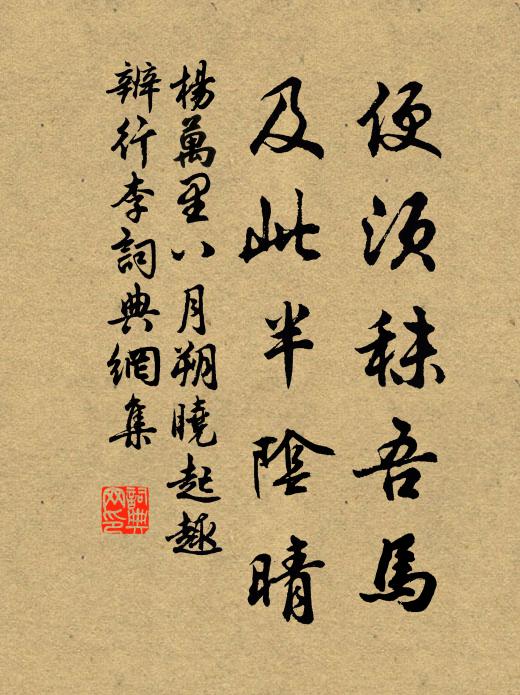 便須秣吾馬
及此半陰晴
楊萬里八月朔曉起趣
辦行李詞典網集
詞典
网印